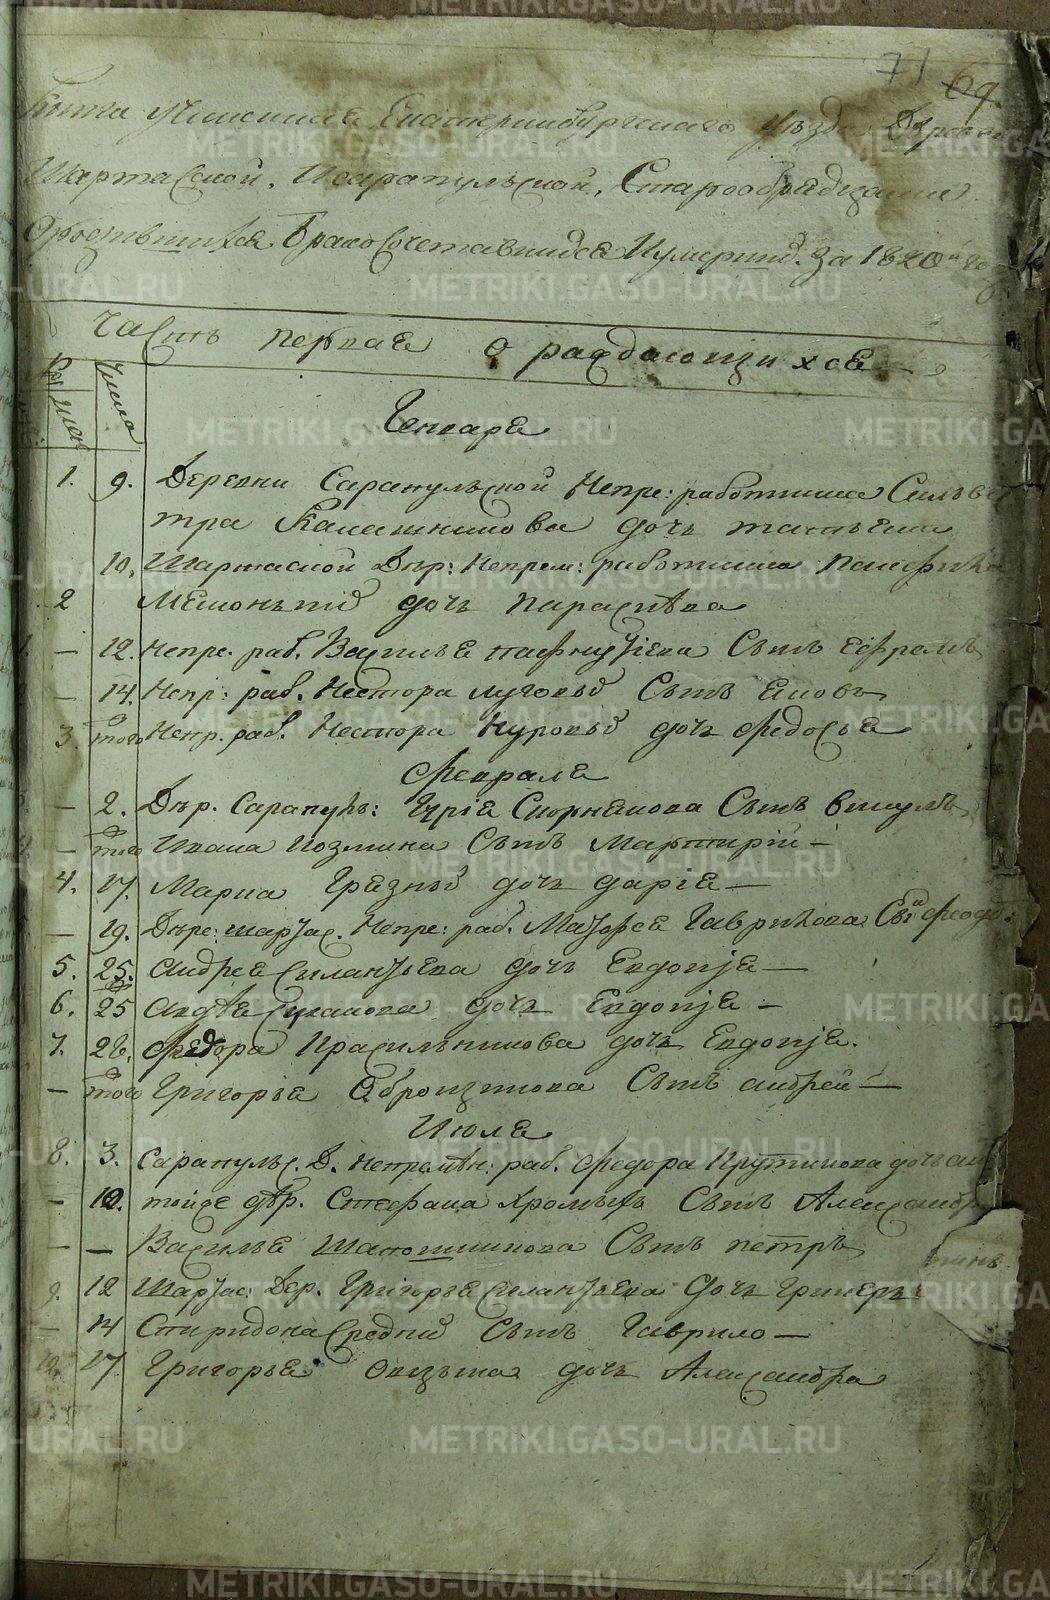 71 69.
Книга учиненная Екатеринбургскаго уезда Деревни
Шарташской, Исарапульской, Старообрядцами
Орожившихся. Бракосочетавшихся Иумерших. За 1820й го
Часть первая о раждающихся
Числа
Генваря
1. 9. Деревни Сарапульской Непре: работника Сильве
тра Калашникова дочь татьяна
10. Шарташской Дер: Непрем: работника
2 дочь параскева
— 12. Непре. раб. Василья пафнутиева Сынъ Ефремъ
— 14. Непр: раб. Нестора луговых Сынъ Яковъ
3. того Непр. раб. Нестора дочь Федосья
Февраля
— 2. Дер. Сарапуль: Гурія Сынъ викулъ
— того Ивана Козмина Сынъ Мартирій —
4. 17. Марка Грязных дочь дарія —
— 19. Дере: шарташ. Непре: раб. Матфея Гаврилова Сынъ феодо:
5. 25. андрея Силантьева дочь Евдокія —
6. 25 авдея дочь Евдокія —
7. 28. Федора Красильникова дочь Евдокія.
— того Григорья Оброщикова Сынъ андрей —
Июля
8. 3. Сарапульс. Д. Непремен: раб. Федора Крутикова дочь
— 10. тойже дер. Стефана Хромыхъ Сынъ Александръ
— — Василья Шапошникова Сынъ петръ
9. 12 Шарташ: Дер. Григорья Силантьева дочь
— 14 Спиридона Сынъ Гаврило —
10. 27. Григорья дочь Александра
METRIKI.GASO-URAL.RU